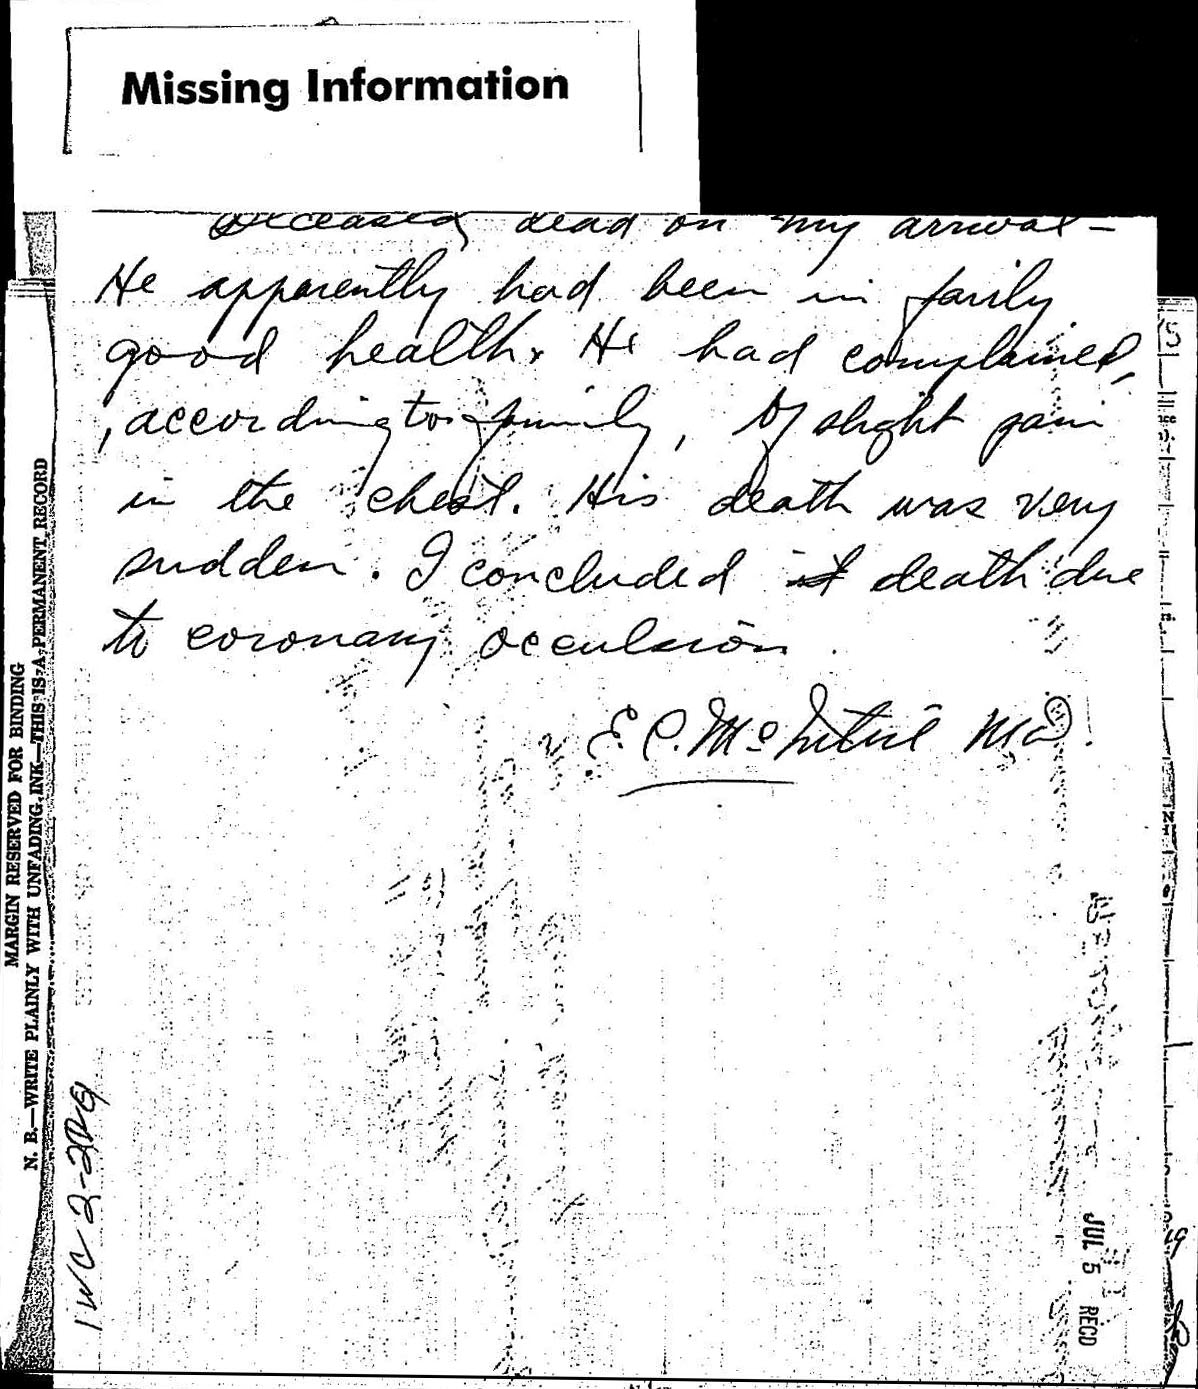 Missing Information
Deceased, dead on my arrival -
He apparently had been in fairly
good health. He had complained,
, according to family, of slight pain
in the chest. His death was very
sudden. I concluded it death due
to coronary occulsion.
E. C. McIntire MD.
MARGIN RESERVED FOR BINDING
N. B.—WRITE PLAINLY WITH UNFADING INK—THIS IS A PERMANENT RECORD
JUL 5 RECD